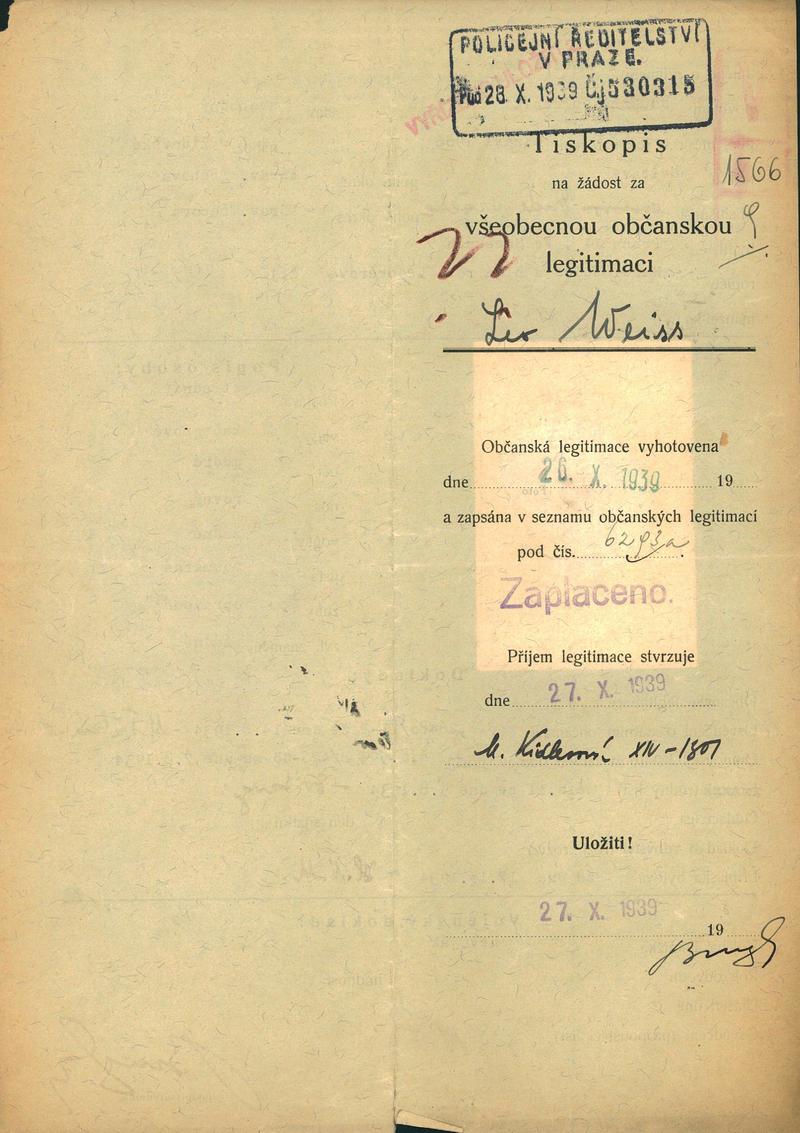 POLICEJNÍ ŘEDITELSTVÍ
V PRAZE.
28. X. 1939 Čj 530315
Tiskopis
1566
na žádost za
všeobecnou občanskou
legitimaci
Leo Weiss
Občanská legitimace vyhotovena
dne 26. X. 1939 19
a zapsána v seznamu občanských legitimací
pod čís. 6293a
Zaplaceno.
Příjem legitimace stvrzuje
dne 27. X. 1939
M. XIV-1801
Uložiti!
27. X. 1939
19